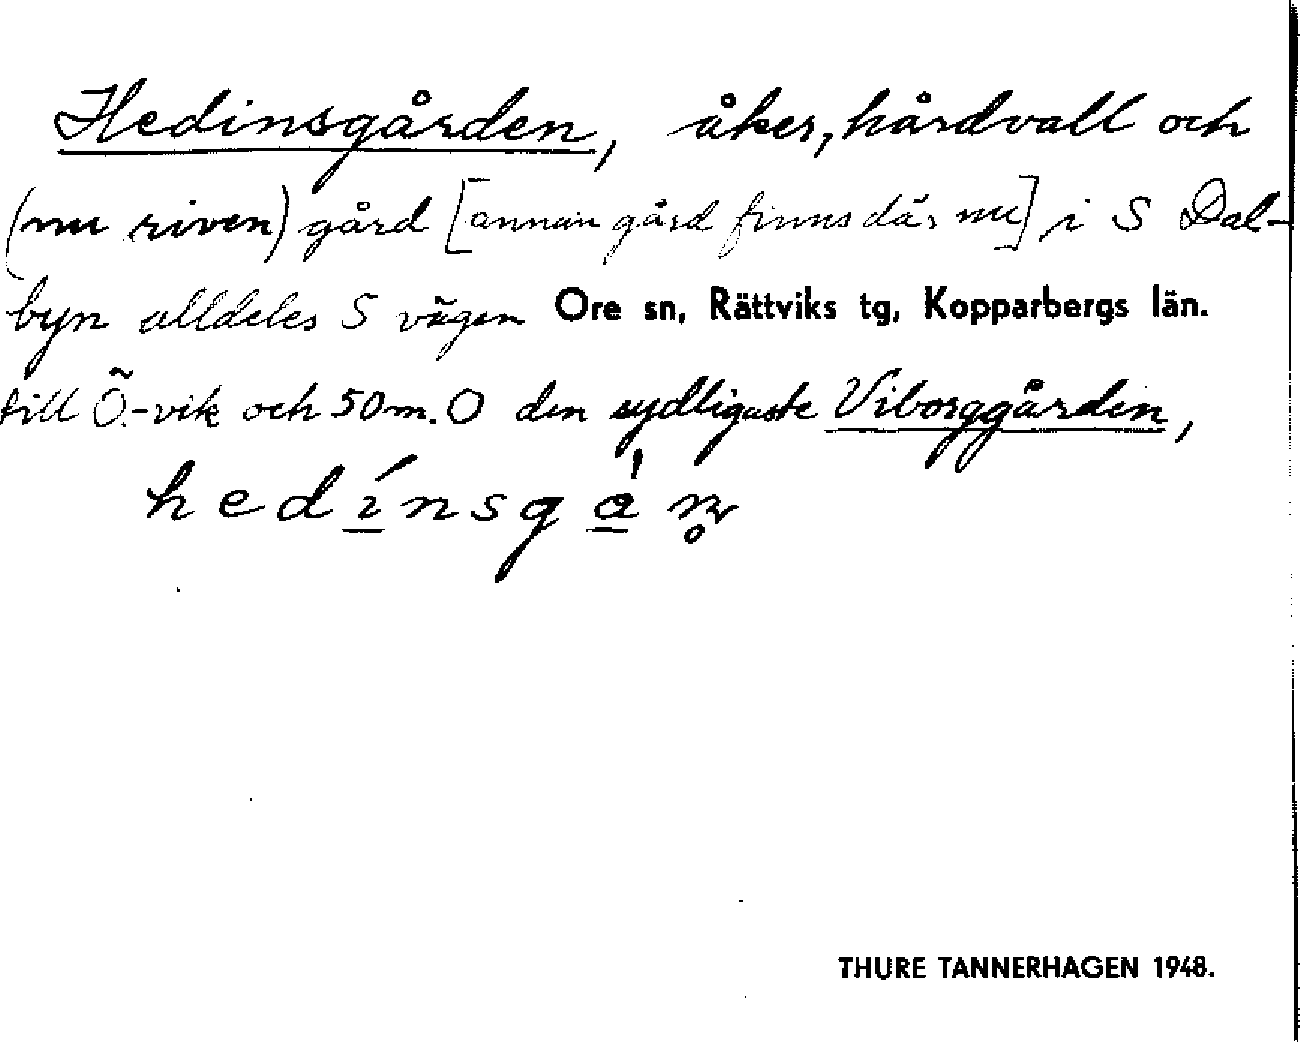 Hedinsgården, åker, hårdvall och
(nu riven) gård [annan gård finns där nu] i S Dal-
byn alldeles S vägen Ore sn, Rättviks tg, Kopparbergs län.
till Ö.-vik och 50 m. O den sydligaste Viborggården,
hedínsgán̥
THURE TANNERHAGEN 1948.